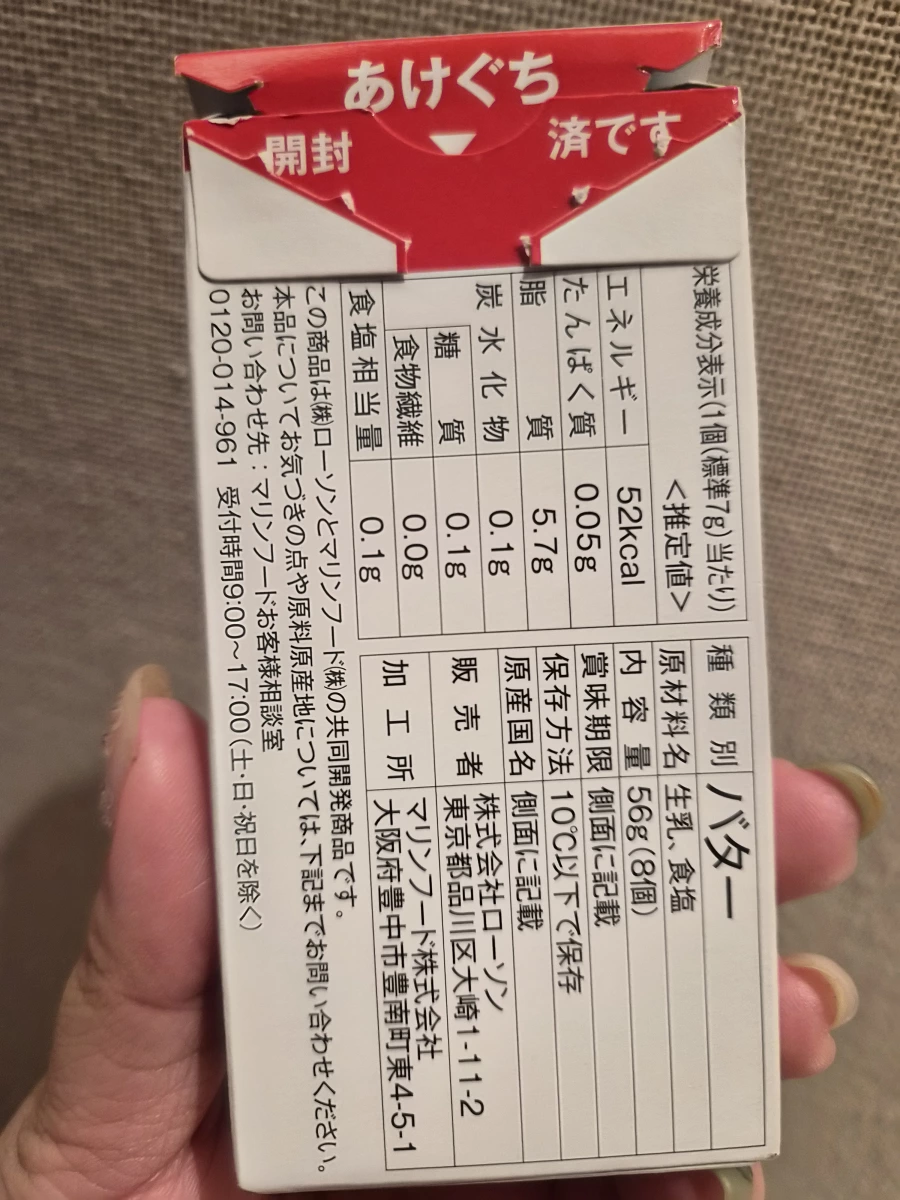 あけぐち
開封 済です
栄養成分表示(1個(標準7g)当たり)
<推定値>
エネルギー 52kcal
たんぱく質 0.05g
脂質 5.7g
炭水化物 0.1g
糖質 0.1g
食物繊維 0.0g
食塩相当量 0.1g
この商品は㈱ローソンとマリンフード㈱の共同開発商品です。
本品についてお気づきの点や原料原産地については、下記までお問い合わせください。
お問い合わせ先:マリンフードお客様相談室
0120-014-961 受付時間9:00~17:00(土・日・祝日を除く)
種類別 バター
原材料名 生乳、食塩
内容量 56g(8個)
賞味期限 側面に記載
保存方法 10℃以下で保存
原産国名 側面に記載
販売者 株式会社ローソン
東京都品川区大崎1-11-2
加工所 マリンフード株式会社
大阪府豊中市豊南町東4-5-1